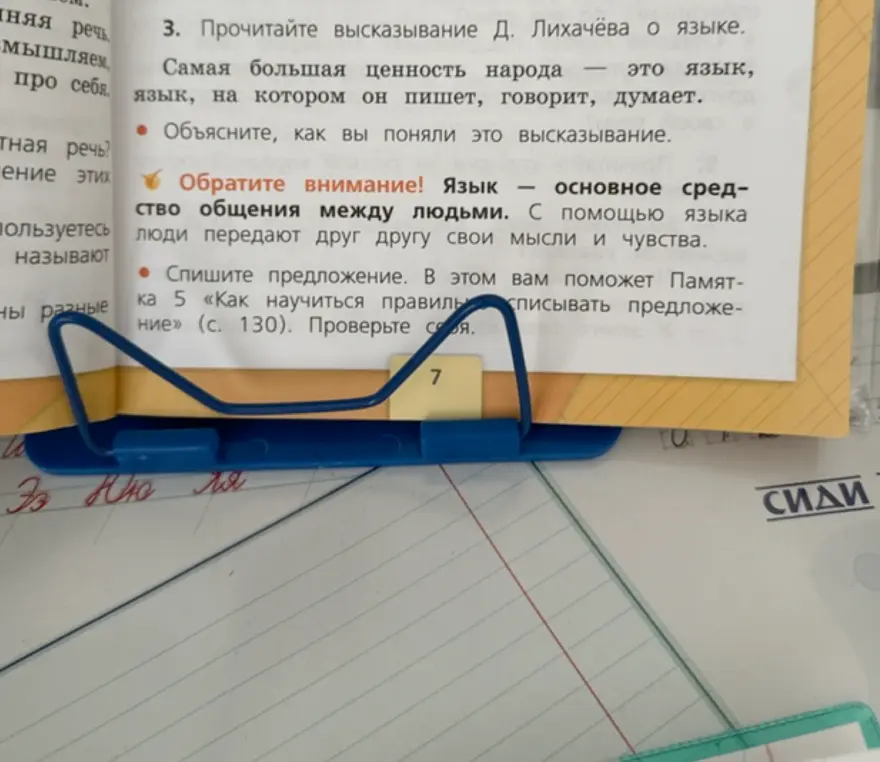 няя речь,
змышляем,
про себя.
тная речь?
ение этих
пользуетесь
называют
ны разные
3. Прочитайте высказывание Д. Лихачёва о языке.
Самая большая ценность народа — это язык,
язык, на котором он пишет, говорит, думает.
• Объясните, как вы поняли это высказывание.
Обратите внимание! Язык — основное сред-
ство общения между людьми. С помощью языка
люди передают друг другу свои мысли и чувства.
• Спишите предложение. В этом вам поможет Памят-
ка 5 «Как научиться правильно списывать предложе-
ние» (с. 130). Проверьте себя.
7
Ээ Юю Яя
СИДИ